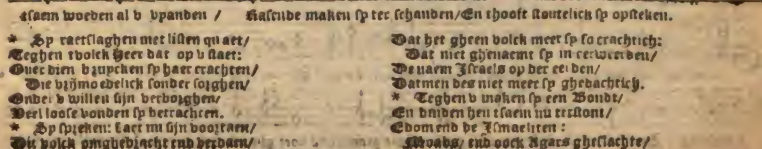 tsaem woeden al v vyanden / Rasende maken sy ter schanden/En thooft stoutelick sy opsteken.
* Sy raetslaghen met listen quaet/
Teghen tvolck Heer dat op v staet:
Ouer dien bruycken sy haer crachten/
Die vrymoedelick sonder sorghen/
Onder v willen sijn verborghen/
Veel loose vonden sy betrachten.
* Sy spreken: Laet ons sijn voortaen/
Dit volck omghebracht end verdaen/
Dat het gheen volck meer sy so crachtich:
Dat niet ghenaemt sy in eerweerden/
De naem Israels op der eerden/
Datmen des niet meer sy ghedachtich.
* Teghen v maken sy een Bondt/
En binden hen tsaem nu terstont/
Edom end de Ismaeliten:
Moabs/ end oock Agars gheslachte/